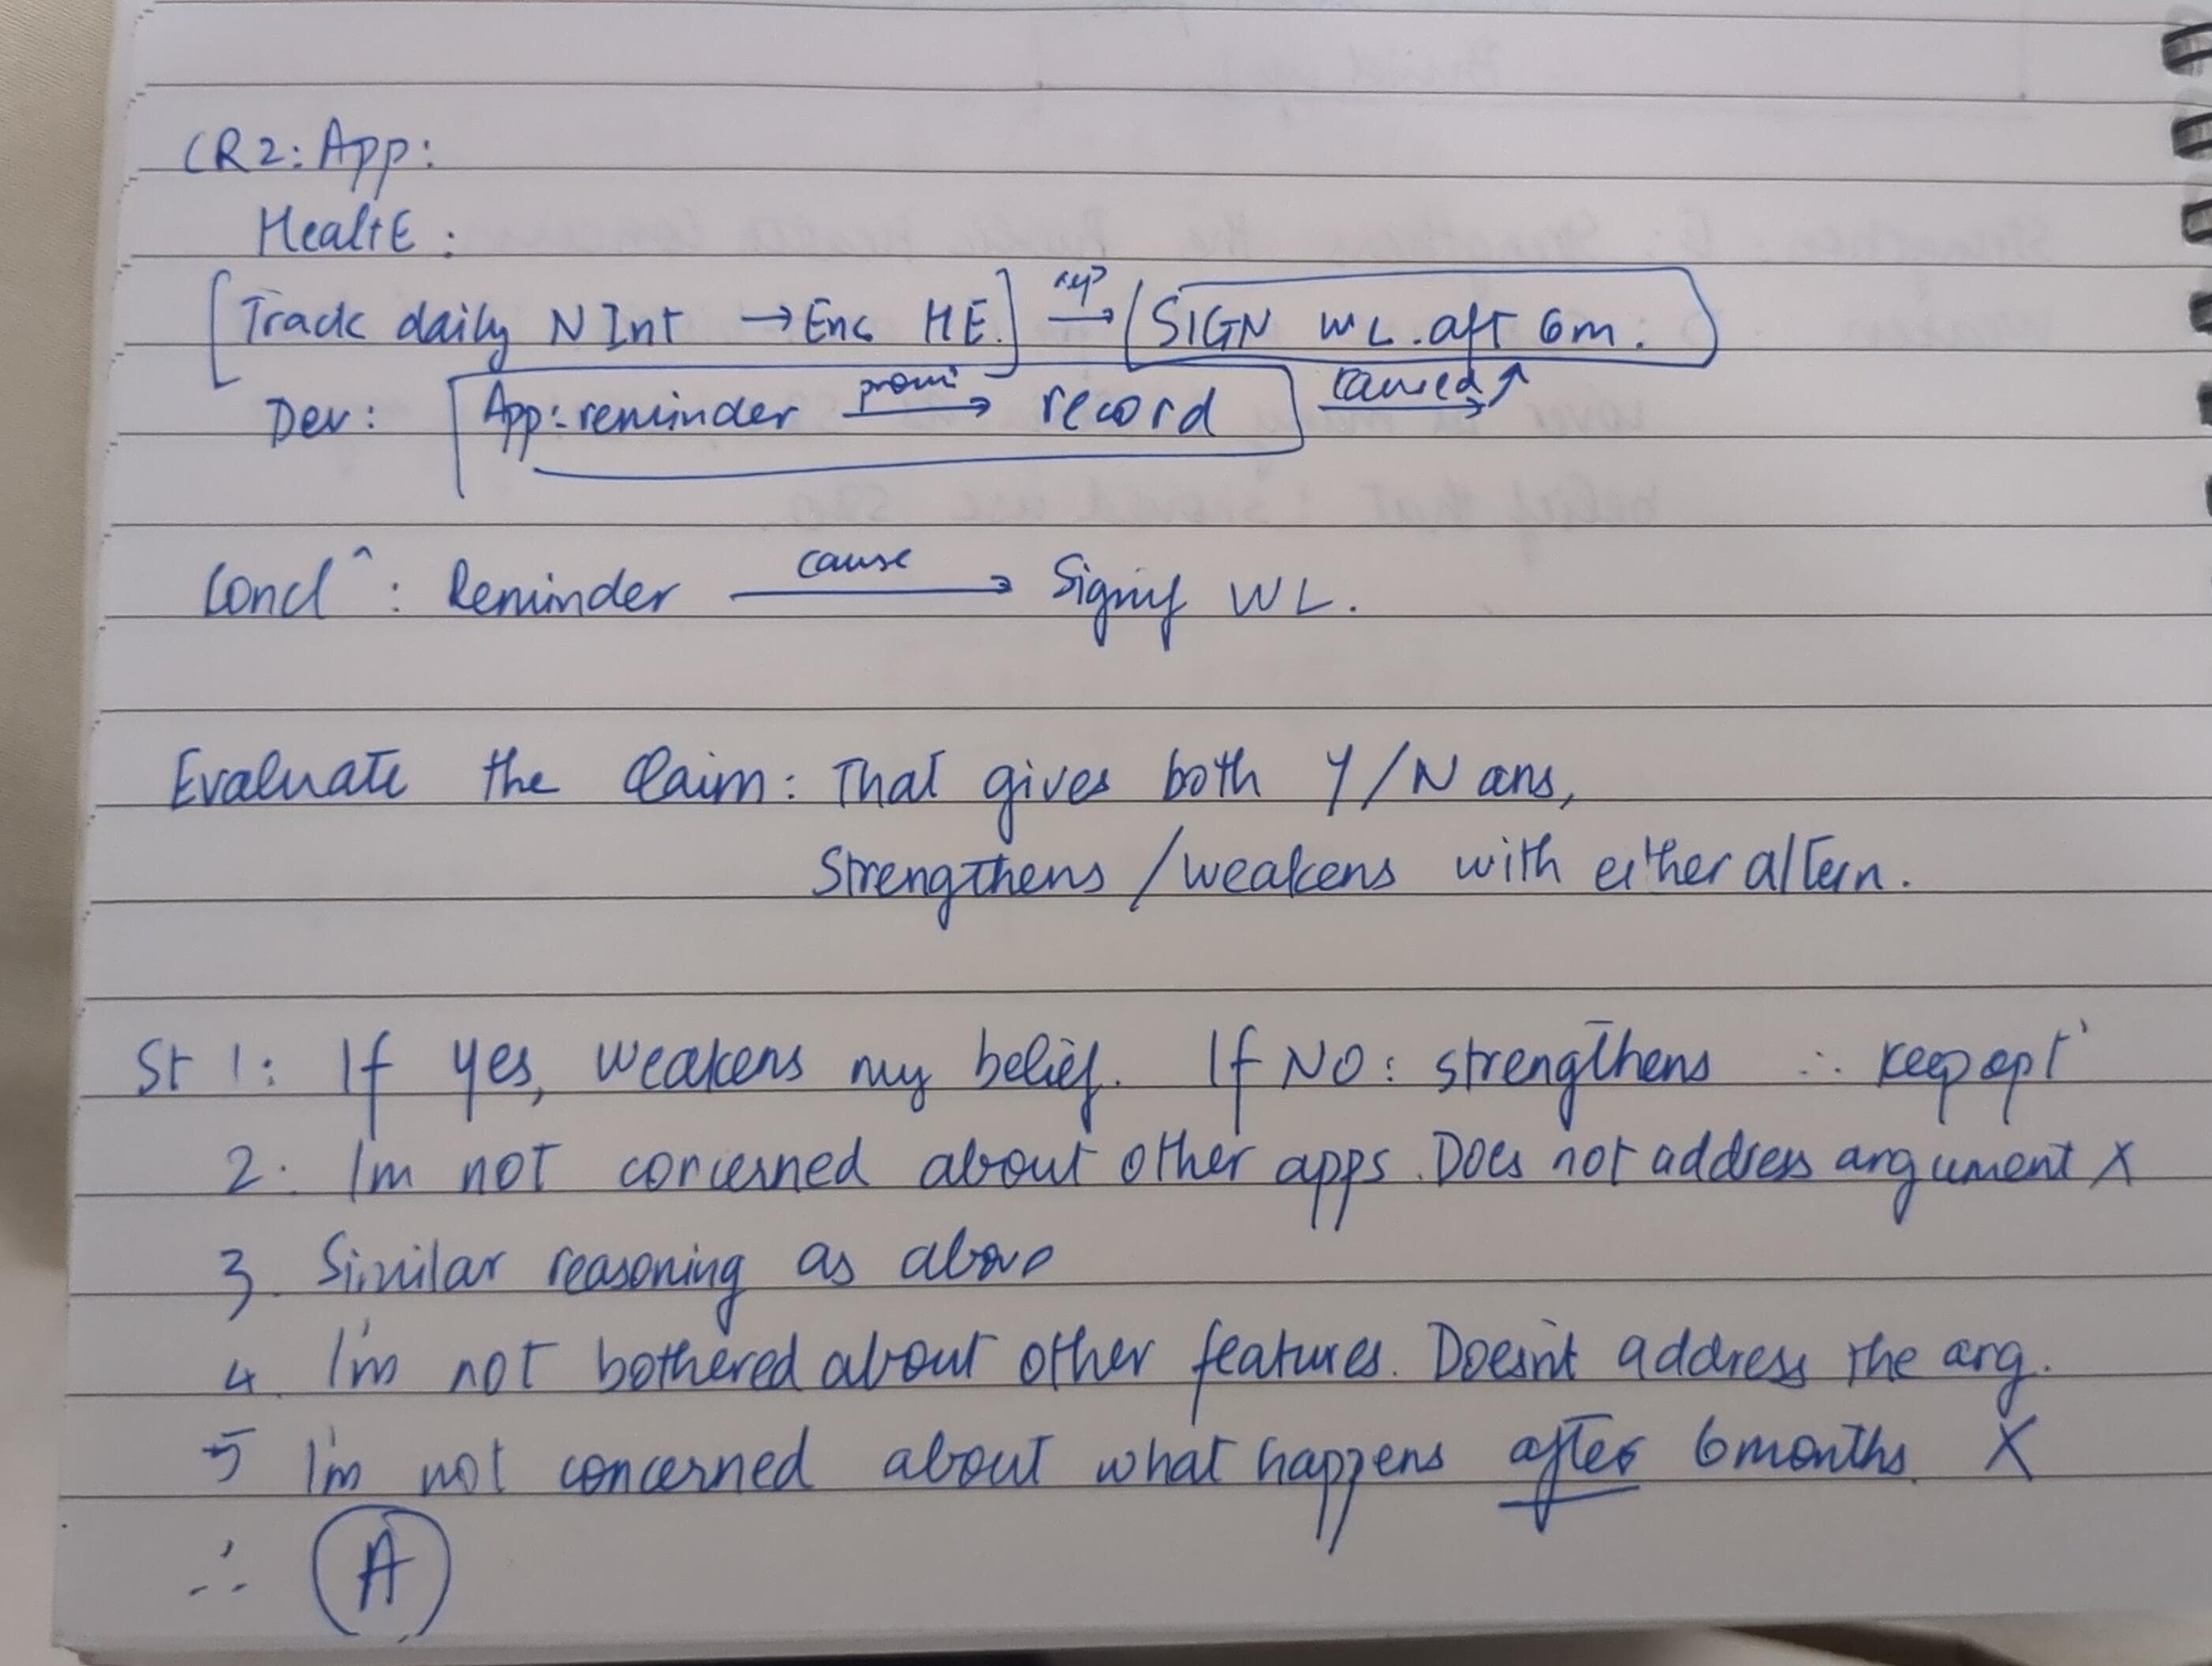 CR2: App:
HealtE:
[Track daily N Int → Enc HE.] rep → [SIGN WL. aft 6m.]
Dev: [App: reminder promi → record] caused → ↑
Concl^: Reminder cause → Signif WL.
Evaluate the Claim: That gives both Y/N ans,
Strengthens / weakens with either altern.
St 1: If yes, weakens my belief. If NO: strengthens ∴ keep opt
2. I'm not concerned about other apps. Does not address argument X
3. Similar reasoning as above
4. I'm not bothered about other features. Doesn't address the arg.
5 I'm not concerned about what happens after 6 months. X
∴ A